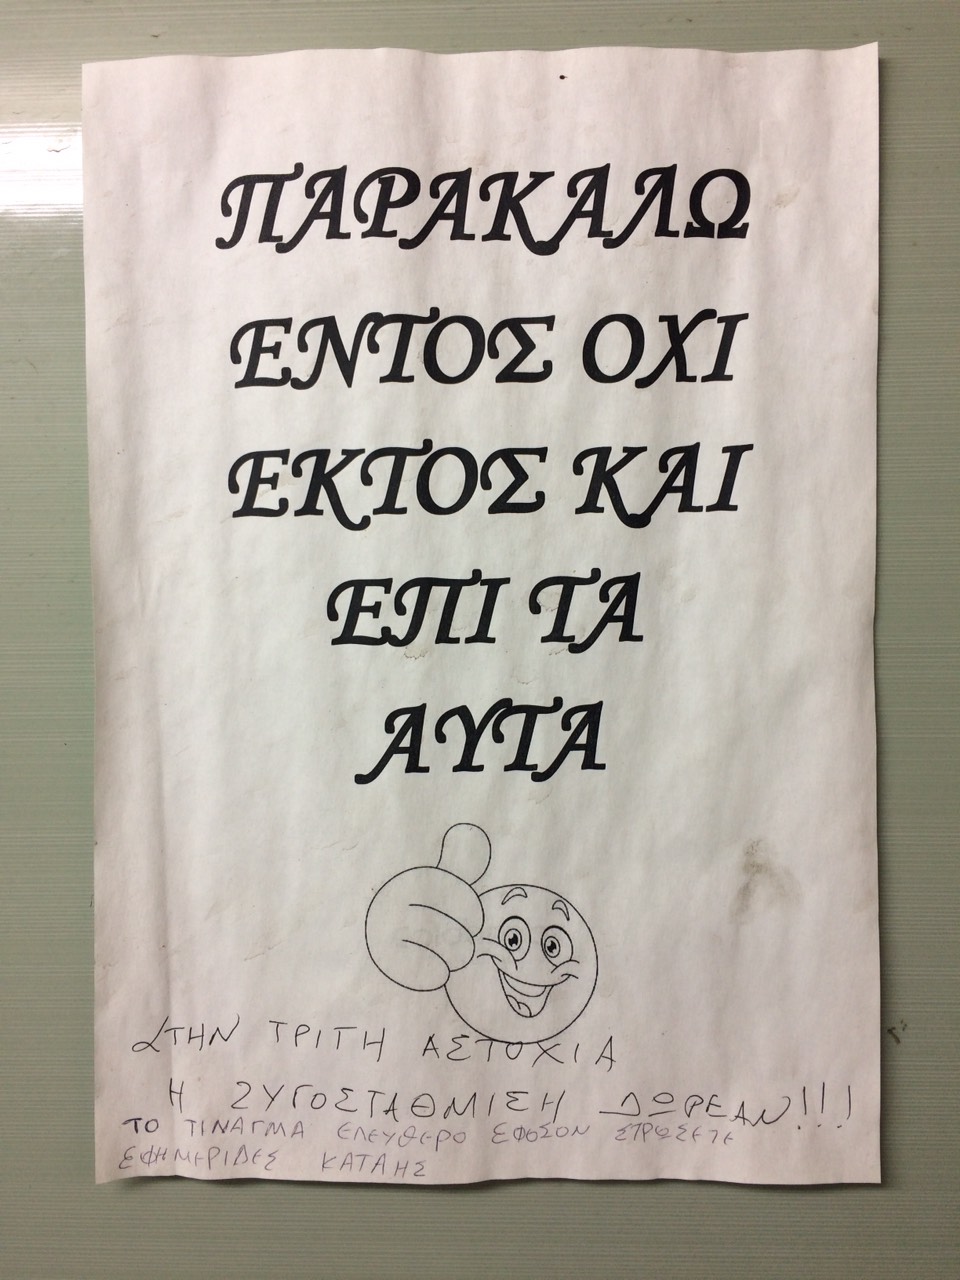 ΠΑΡΑΚΑΛΩ
ΕΝΤΟΣ ΟΧΙ
ΕΚΤΟΣ ΚΑΙ
ΕΠΙ ΤΑ
ΑΥΤΑ
ΣΤΗΝ ΤΡΙΤΗ ΑΣΤΟΧΙΑ
Η ΖΥΓΟΣΤΑΘΜΙΣΗ ΔΩΡΕΑΝ!!!
ΤΟ ΤΙΝΑΓΜΑ ΕΛΕΥΘΕΡΟ ΕΦΟΣΟΝ ΣΤΡΩΣΕΤΕ
ΕΦΗΜΕΡΙΔΕΣ ΚΑΤΑΗΣ